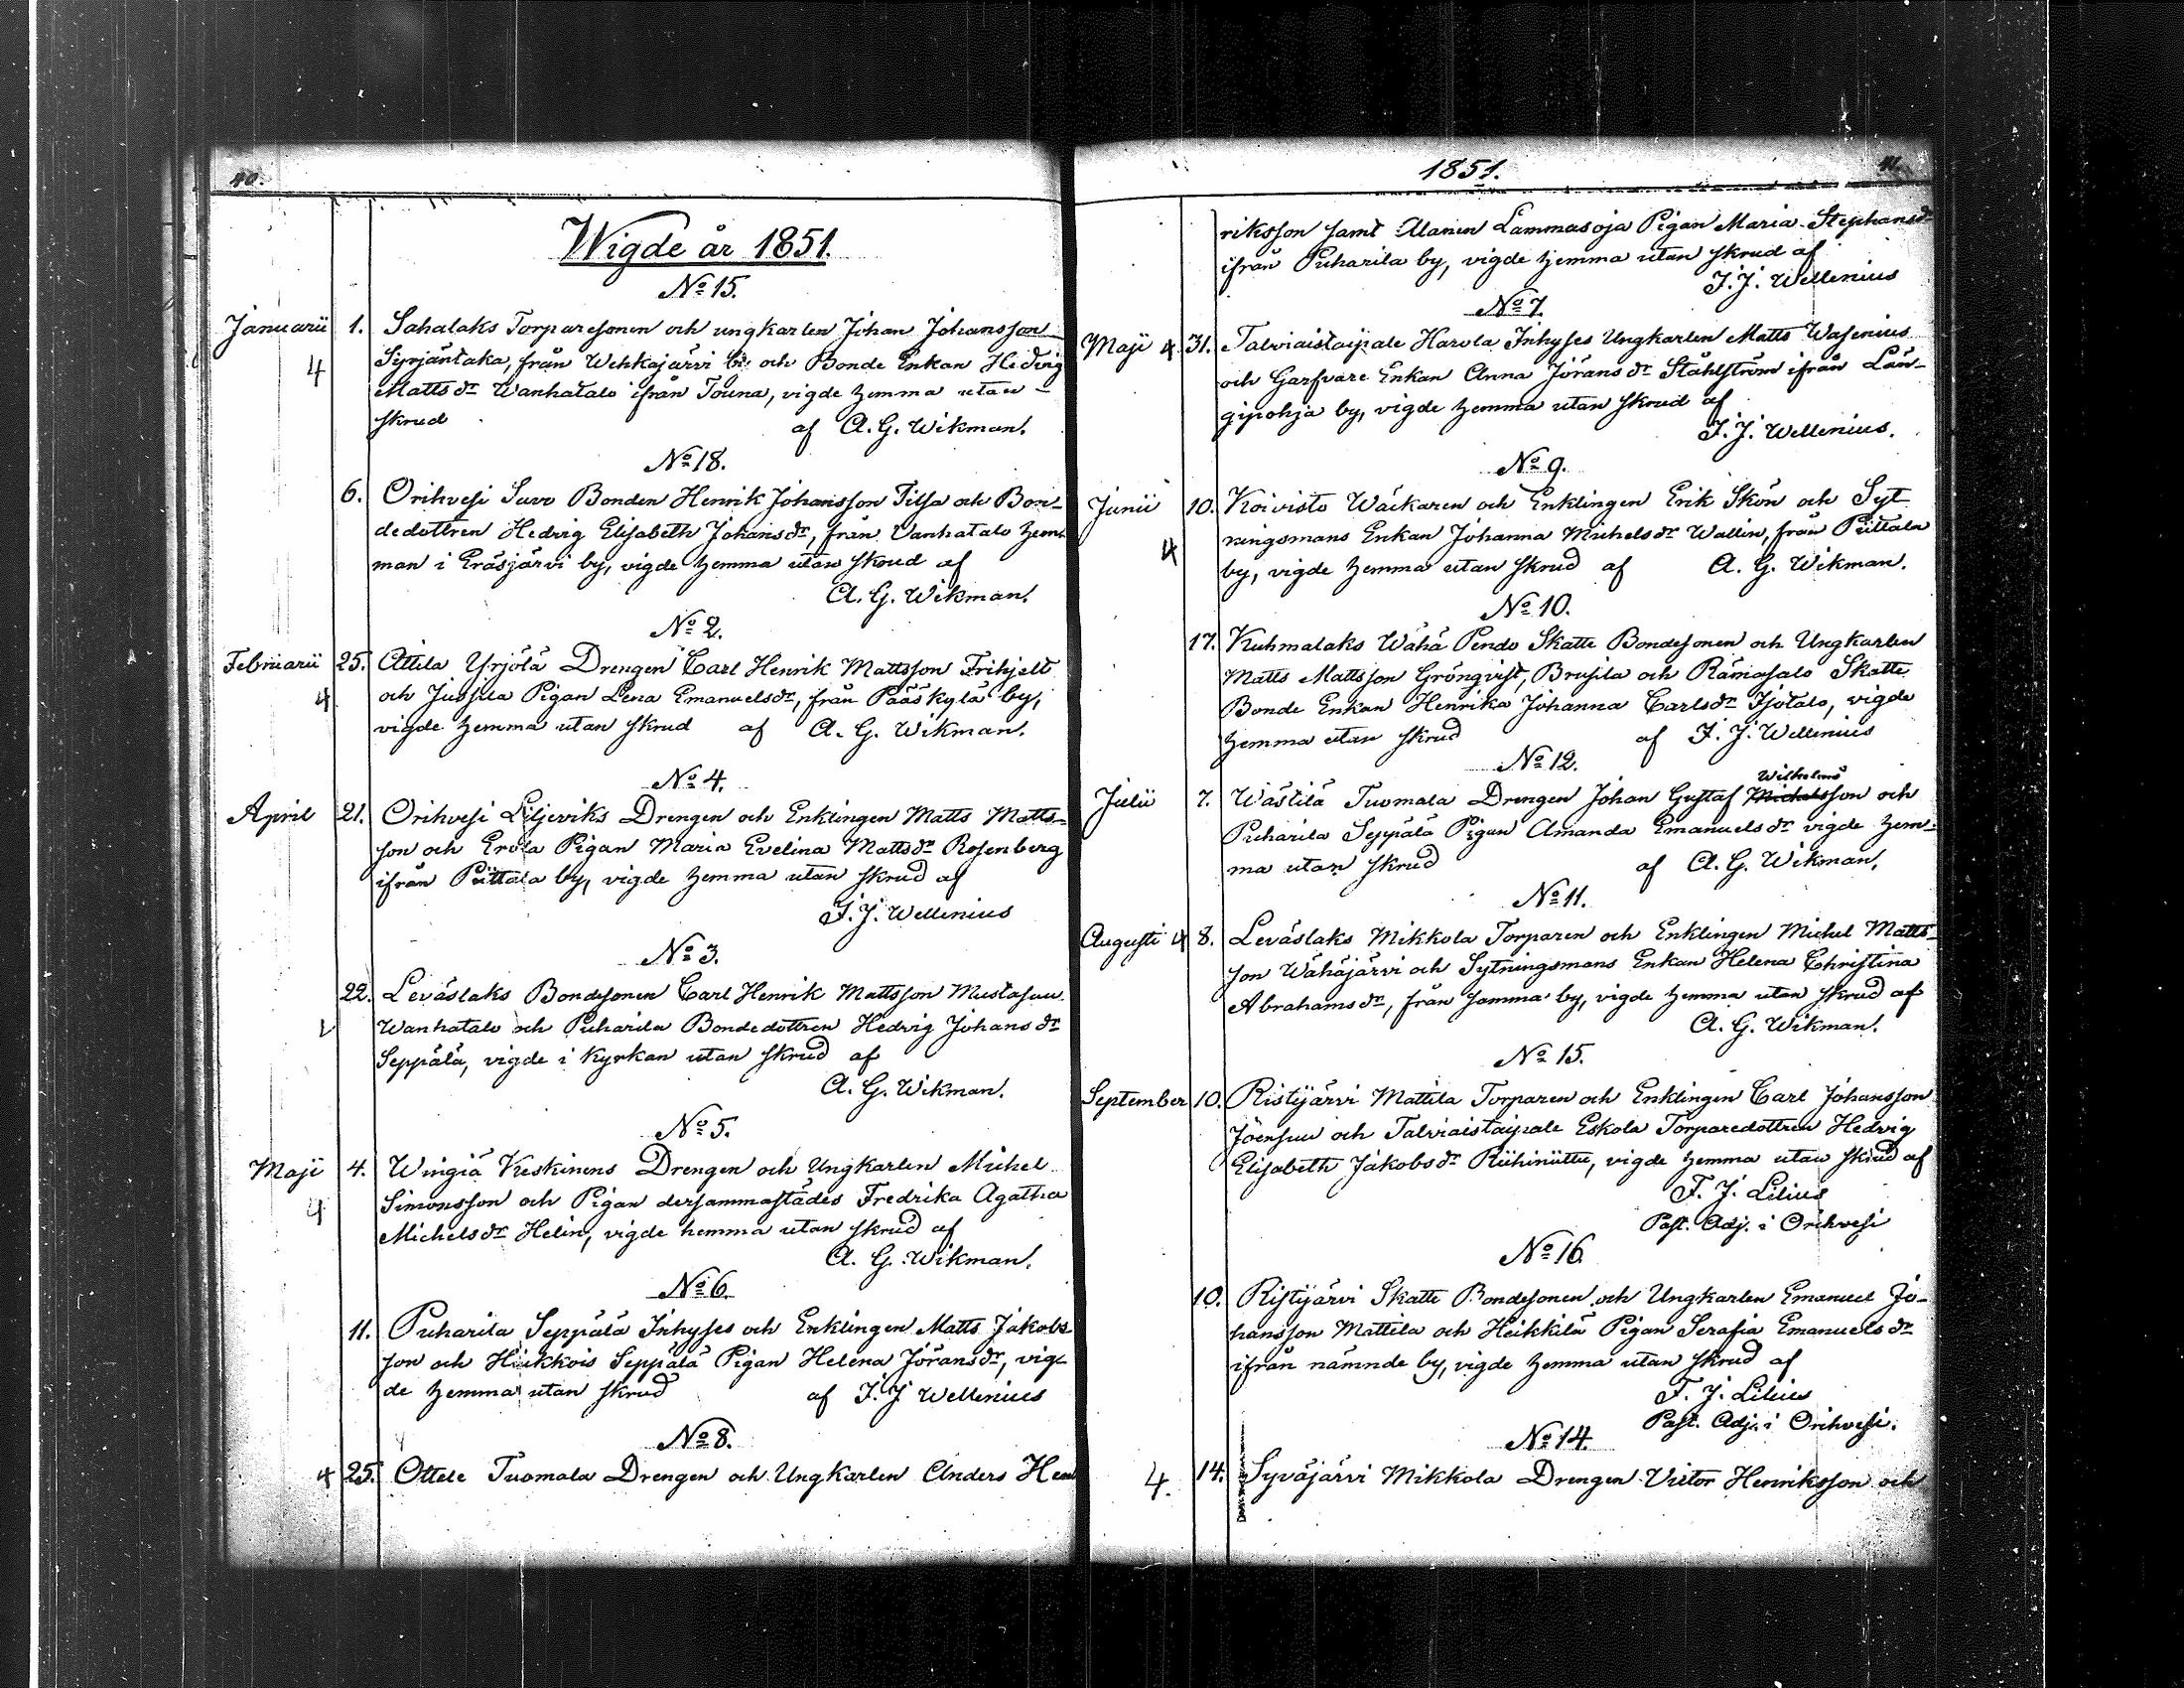 40.
Wigde år 1851.
No 15.
Januarii 1. Sahalaks Torparesonen och ungkarlen Johan Johansson
4 Syrjäntaka, från Wehkajärvi by och Bonde Enkan Hedvig
Mattsdr Wanhatalo ifrån Touna, vigde hemma utan
skrud af A. G. Wikman.
No 18.
6. Orihvesi Suvo Bonden Henrik Johansson Tilsa och Bon-
dedottren Hedvig Elisabeth Johansdr, från Vanhatalo hem-
man i Eräsjärvi by, vigde hemma utan skrud af
A. G. Wikman.
No 2.
Februarii 25. Attila Yrjölä Drengen Carl Henrik Mattsson Frihjelt
4 och Jussila Pigan Lena Emanuelsdr, från Pääskylä by,
vigde hemma utan skrud af A. G. Wikman.
No 4.
April 21. Orihvesi Liljeviks Drengen och Enklingen Matts Matts-
son och Erola Pigan Maria Evelina Mattsdr Rosenberg
ifrån Pittala by, vigde hemma utan skrud af
J. J. Wellenius
No 3.
22. Leväslaks Bondesonen Carl Henrik Mattsson Mustasuu
Wanhatalo och Puharila Bondedottren Hedvig Johansdr
Seppälä, vigde i Kyrkan utan skrud af
A. G. Wikman.
No 5.
Maji 4. Wingiä Keskinens Drengen och Ungkarlen Michel
4 Simonsson och Pigan dersammastädes Fredrika Agatha
Michelsdr Helin, vigde hemma utan skrud af
A. G. Wikman.
No 6.
11. Puharila Seppälä Inhyses och Enklingen Matts Jakobs-
son och Hirkkois Seppälä Pigan Helena Jöransdr, vig-
de hemma utan skrud af J. J. Wellenius
No 8.
4 25. Ottele Tuomala Drengen och Ungkarlen Anders Hen
1851.
41.
riksson samt Alanen Lammasoja Pigan Maria Stephansdr
ifrån Puharila by, vigde hemma utan skrud af
J. J. Wellenius
No 7.
Maji 4 31. Talviaistaipale Harola Inhyses Ungkarlen Matts Wasenius
och Garfvare Enkan Anna Jöransdr Ståhlström ifrån Län-
gipohja by, vigde hemma utan skrud af
J. J. Wellenius.
No 9.
Junii 10. Koivisto Wäckaren och Enklingen Erik Skön och Syt
4 ningsmans Enkan Johanna Michelsdr Wallin, från Pittala
by, vigde hemma utan skrud af A. G. Wikman.
No 10.
17. Kuhmalaks Wähä Pendo Skatte Bondesonen och Ungkarlen
Matts Mattsson Grönqvist, Brusila och Rämäsalo Skatte
Bonde Enkan Henrika Johanna Carlsdr Isotalo, vigde
hemma utan skrud af J. J. Wellenius
No 12.
Wilhelms
Julii 7. Wästilä Tuomala Drengen Johan Gustaf Michelsson och
Puharila Seppälä Pigan Amanda Emanuelsdr vigde hem-
ma utan skrud af A. G. Wikman.
No 11.
Augusti 4 8. Leväslaks Mikkola Torparen och Enklingen Michel Matts-
son Wähäjärvi och Sytningsmans Enkan Helena Christina
Abrahamsdr, från samma by, vigde hemma utan skrud af
A. G. Wikman.
No 15.
September 10. Ristijärvi Mattila Torparen och Enklingen Carl Johansson
Joensuu och Talviaistaipale Eskola Torparedottren Hedvig
Elisabeth Jakobsdr Riihiniittu, vigde hemma utan skrud af
F. J. Lilius
Past. Adj. i Orihvesi
No 16
10. Ristijärvi Skatte Bondesonen och Ungkarlen Emanuel Jo-
hansson Mattila och Heikkilä Pigan Serafia Emanuelsdr
ifrån nämnde by, vigde hemma utan skrud af
F. J. Lilius
Past. Adj. i Orihvesi.
No 14.
4. 14. Syväjärvi Mikkola Drengen Victor Henriksson och